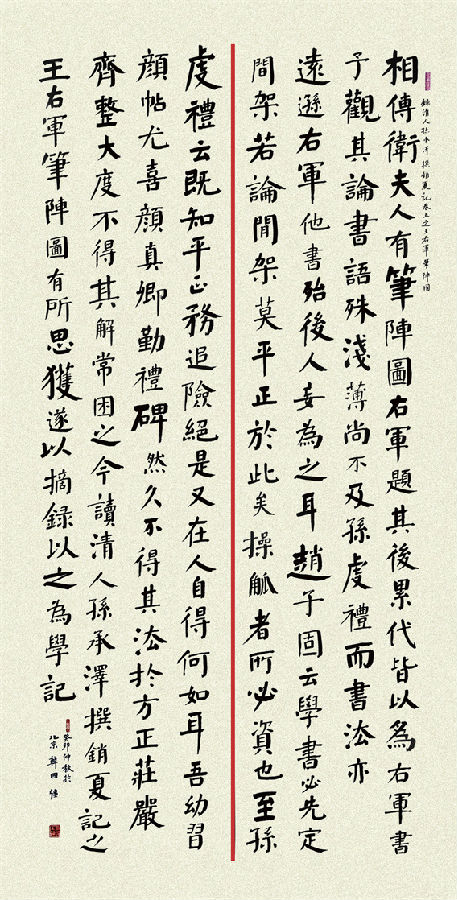 相傳衛夫人有筆陣圖右軍題其後累代皆以為右軍書
予觀其論書語殊淺薄尚不及孫虔禮而書法亦
遠遜右軍他書殆後人妄為之耳趙子固云學書必先定
間架若論間架莫平正於此矣操觚者所必資也至孫
虔禮云既知平正務追險絕是又在人自得何如耳吾幼習
顏帖尤喜顏真卿勤禮碑然久不得其法於方正莊嚴
齊整大度不得其解常困之今讀清人孫承澤撰銷夏記之
王右軍筆陣圖有所思獲遂以摘錄以之為學記